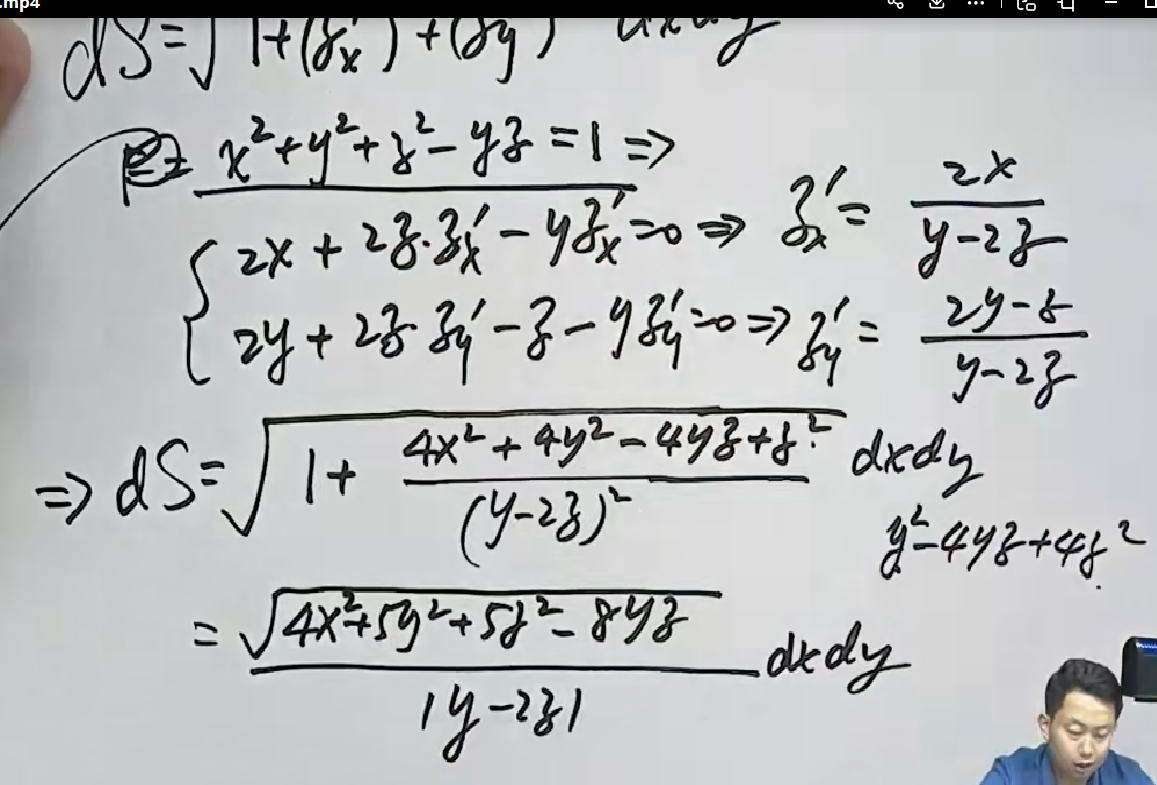 .mp4
dS=√1+(z'x)+(z'y) dxdy
由 x²+y²+z²-yz=1⇒
{2x+2z·z'x-yz'x=0⇒ z'x= 2x/(y-2z)
2y+2z·z'y-z-yz'y=0⇒z'y= (2y-z)/(y-2z)
⇒dS=√(1+(4x²+4y²-4yz+z²)/(y-2z)²) dxdy
y²-4yz+4z²
=√(4x²+5y²+5z²-8yz)/|y-2z| dxdy